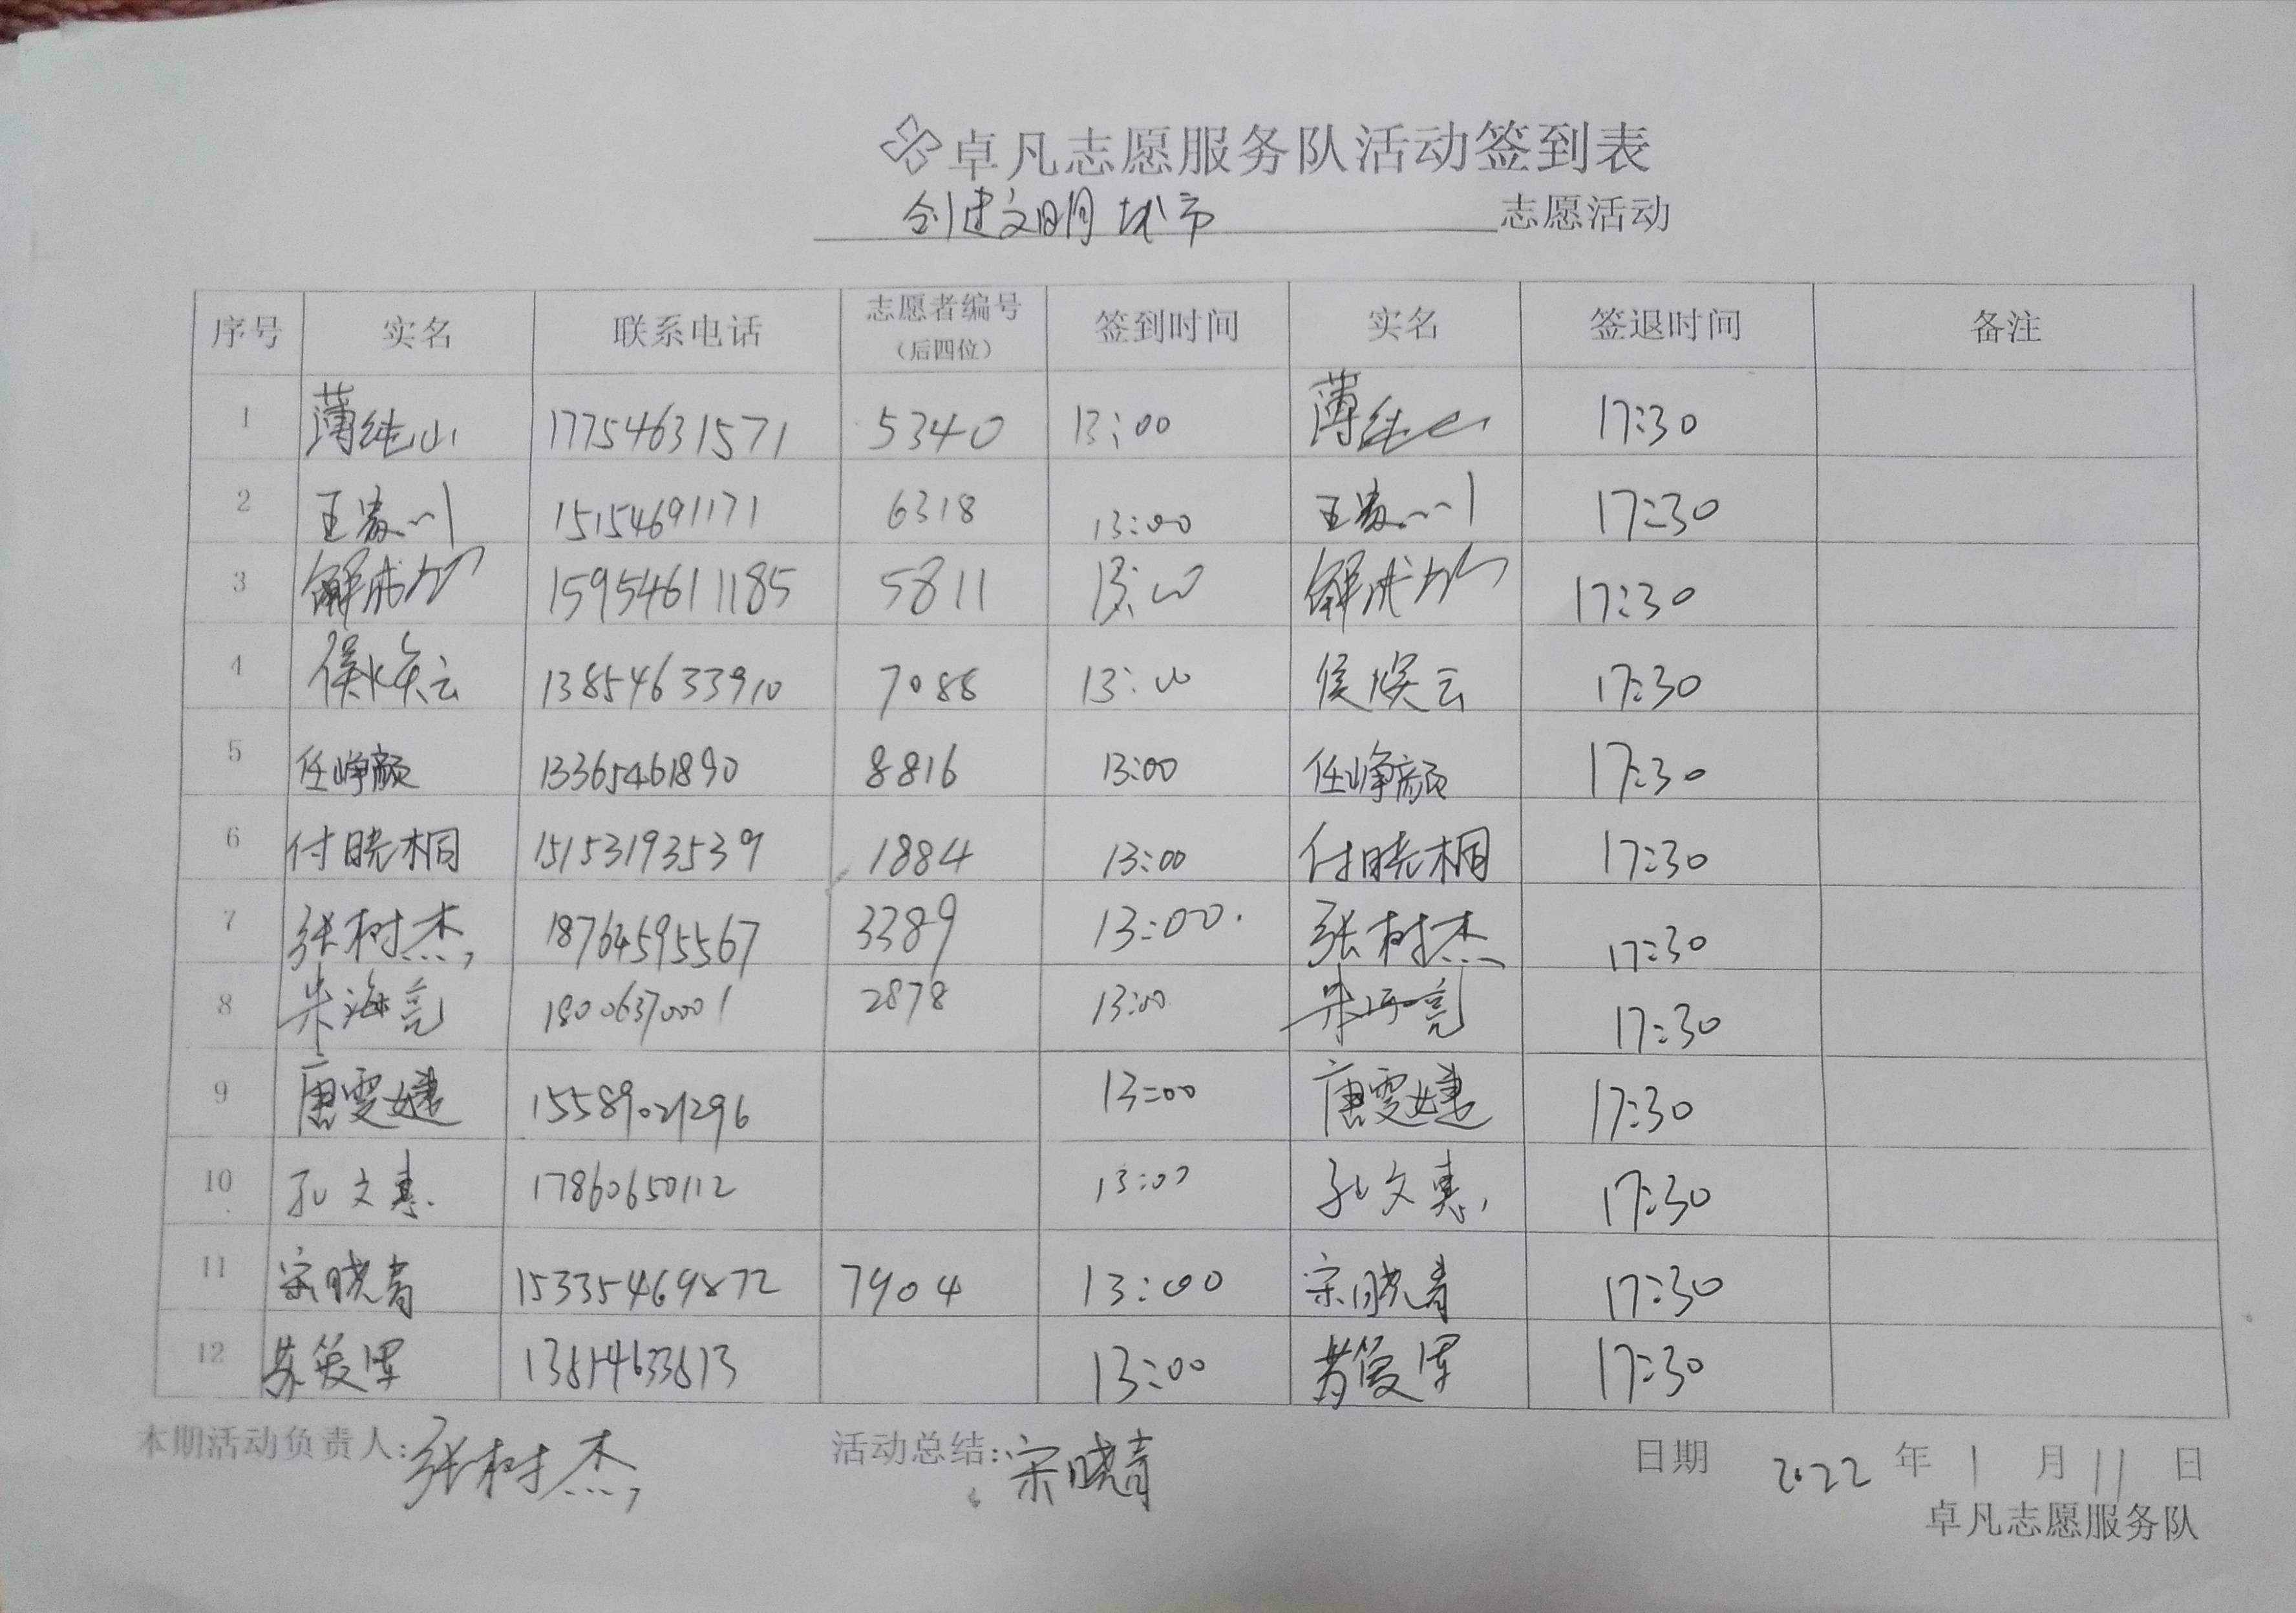 卓凡志愿服务队活动签到表
创建文明城市 志愿活动
序号 实名 联系电话 志愿者编号（后四位） 签到时间 实名 签退时间 备注
1 薄纯山 17754631571 5340 13:00 薄纯山 17:30
2 15154691171 6318 13:00 17:30
3 15954611185 5811 13:00 17:30
4 侯焕云 13854633910 7088 13:00 侯焕云 17:30
5 任峥颜 13365461890 8816 13:00 任峥颜 17:30
6 付晓桐 15153193539 1884 13:00 付晓桐 17:30
7 张树杰 18764595567 3389 13:00 张树杰 17:30
8 朱海亮 18006370001 2878 13:00 朱海亮 17:30
9 唐雯婕 15589021296 13:00 唐雯婕 17:30
10 孔文惠 17860650112 13:00 孔文惠 17:30
11 宋晓青 15335469872 7904 13:00 宋晓青 17:30
12 13:00 17:30
本期活动负责人:张树杰 活动总结:宋晓青 日期 2022年1月11日
卓凡志愿服务队